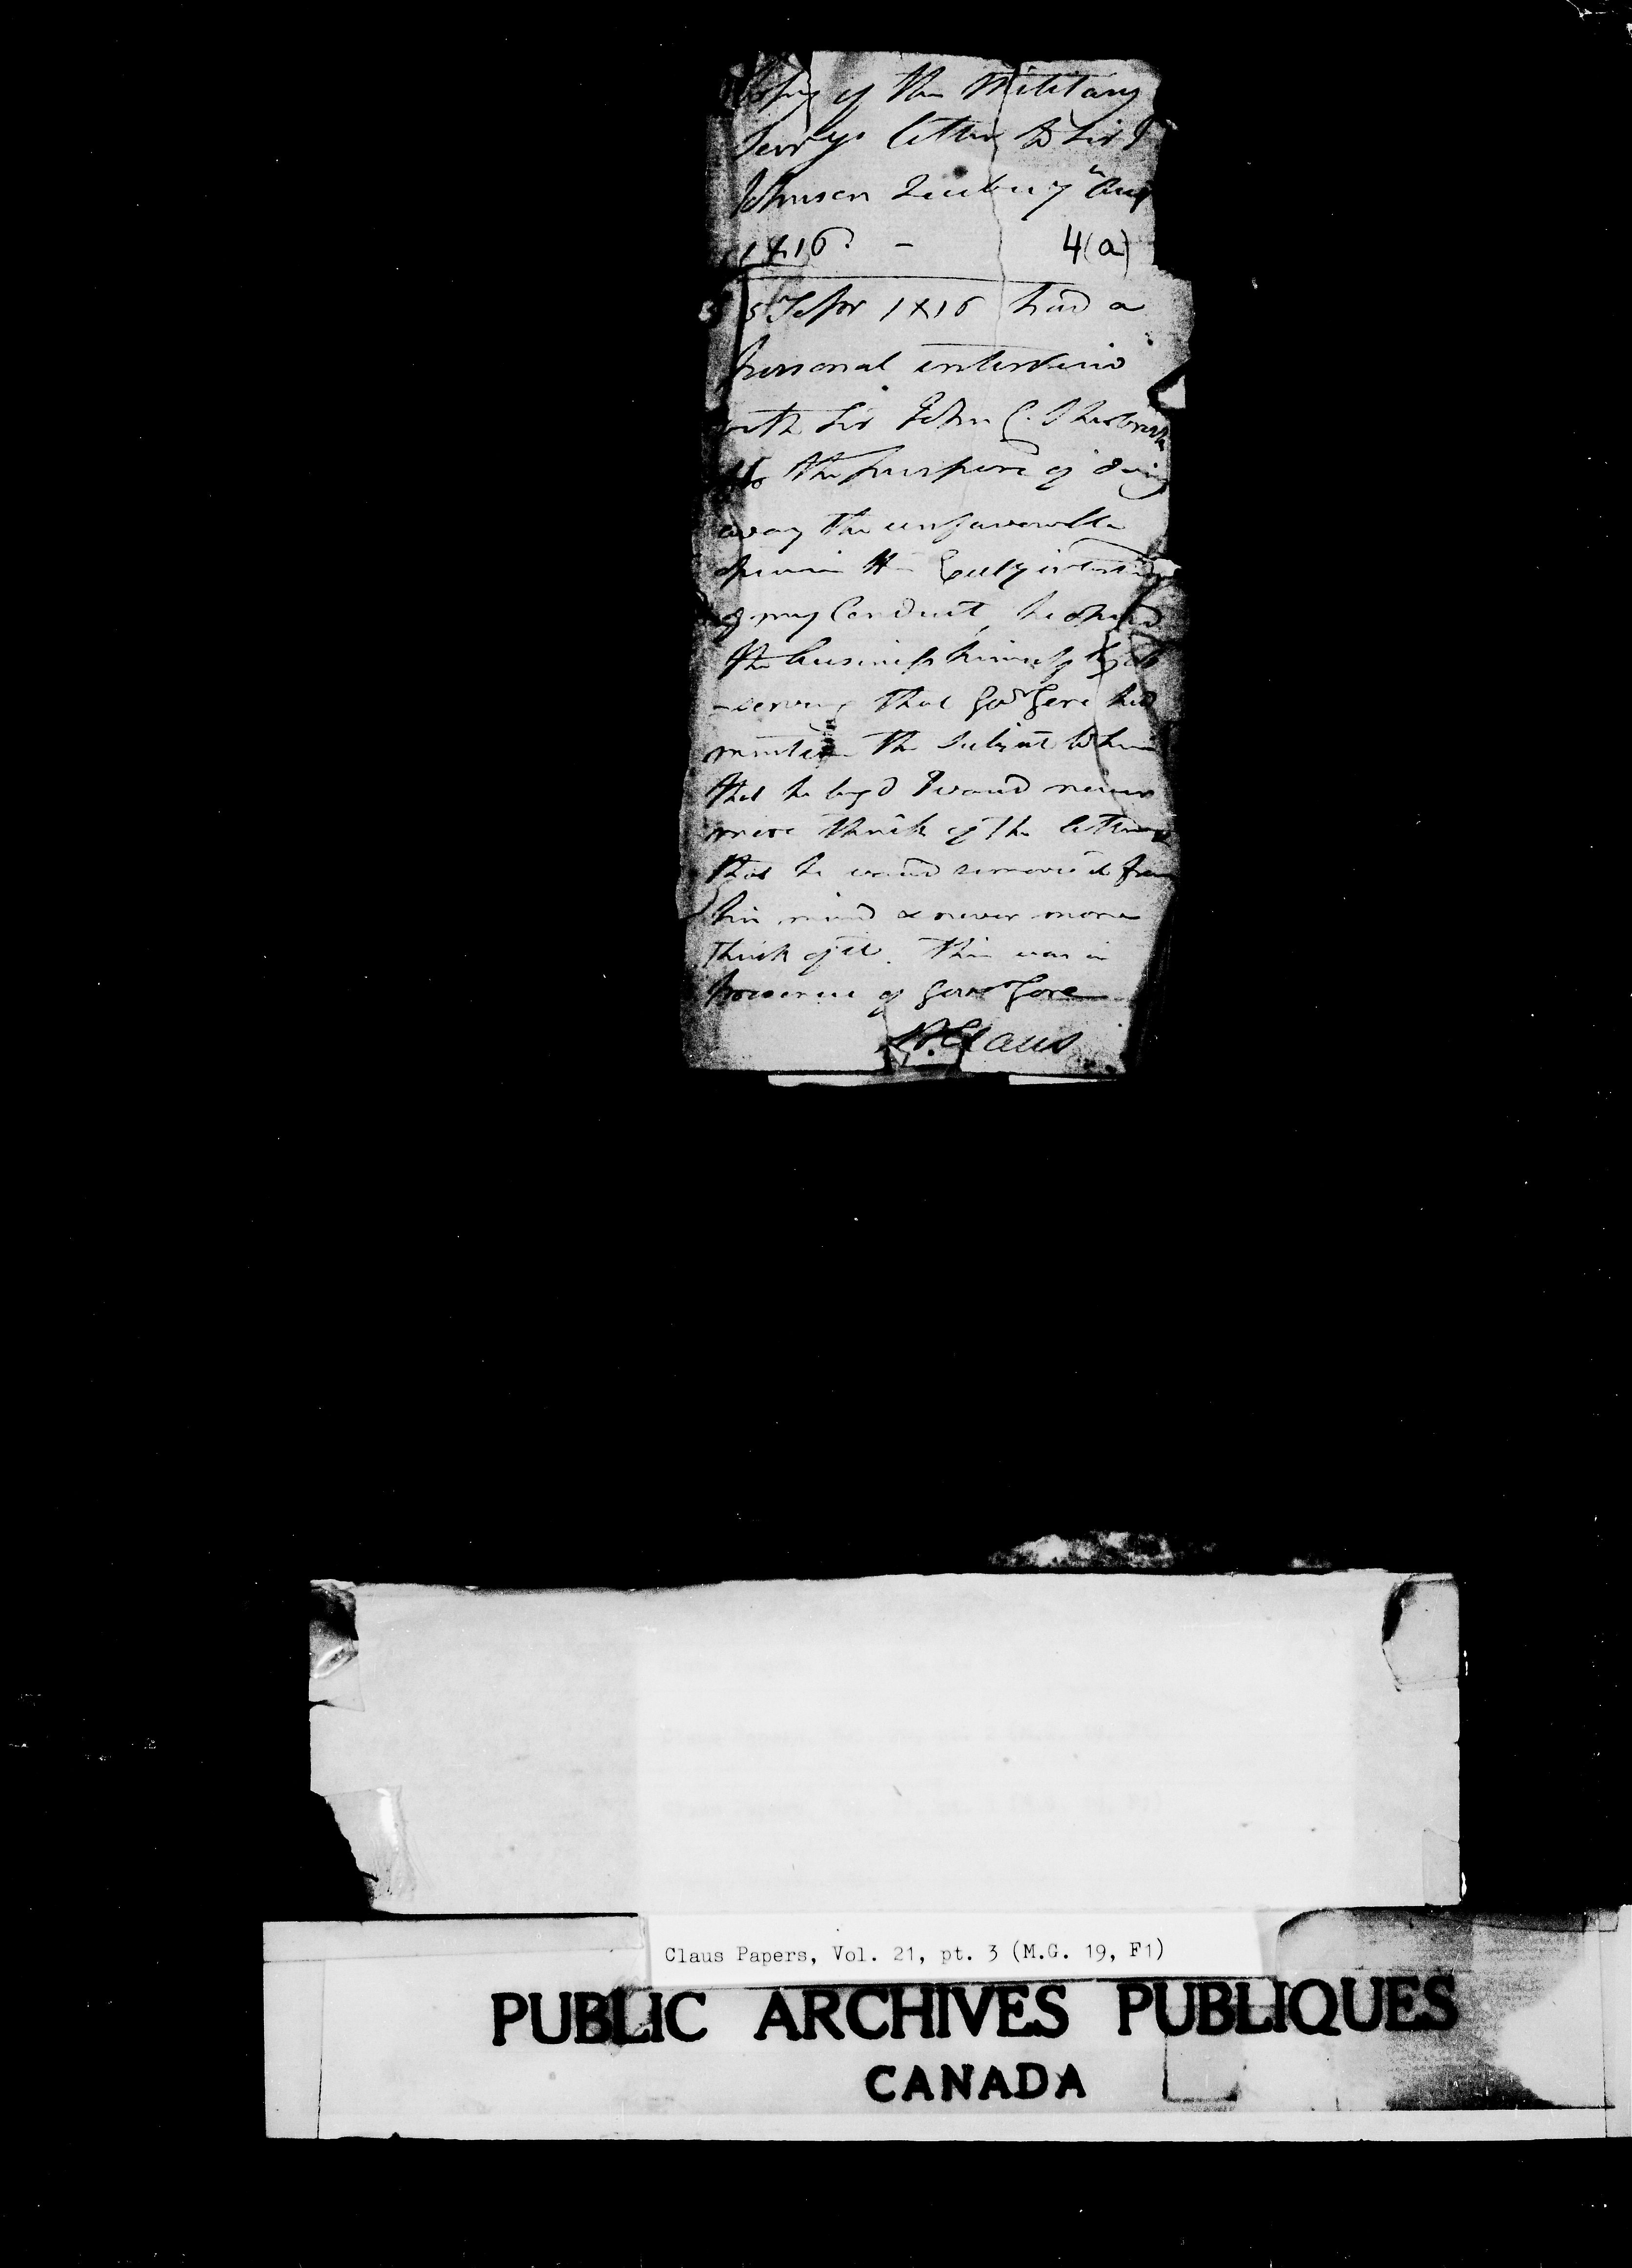 Copy of the Military
Secrys letter to Sir J
Johnson Quebec 7th Aug
1816. - 4(a)
5th Sepr 1816 had a
personal interview
with Sir John C. Sherbrooke
for the purpose of doing
away the unfavorable
opinion he
of my Conduct, he opened
the business himself by ob
-serving that Govr Gore had
mention the subject to him
that he begd I would never
more think of the letter
that he would remove it from
his mind & never more
think of it. This was in
presence of Govr Gore
W. Claus
Claus Papers, Vol. 21, pt. 3 (M.G. 19, F1)
PUBLIC ARCHIVES PUBLIQUES
CANADA